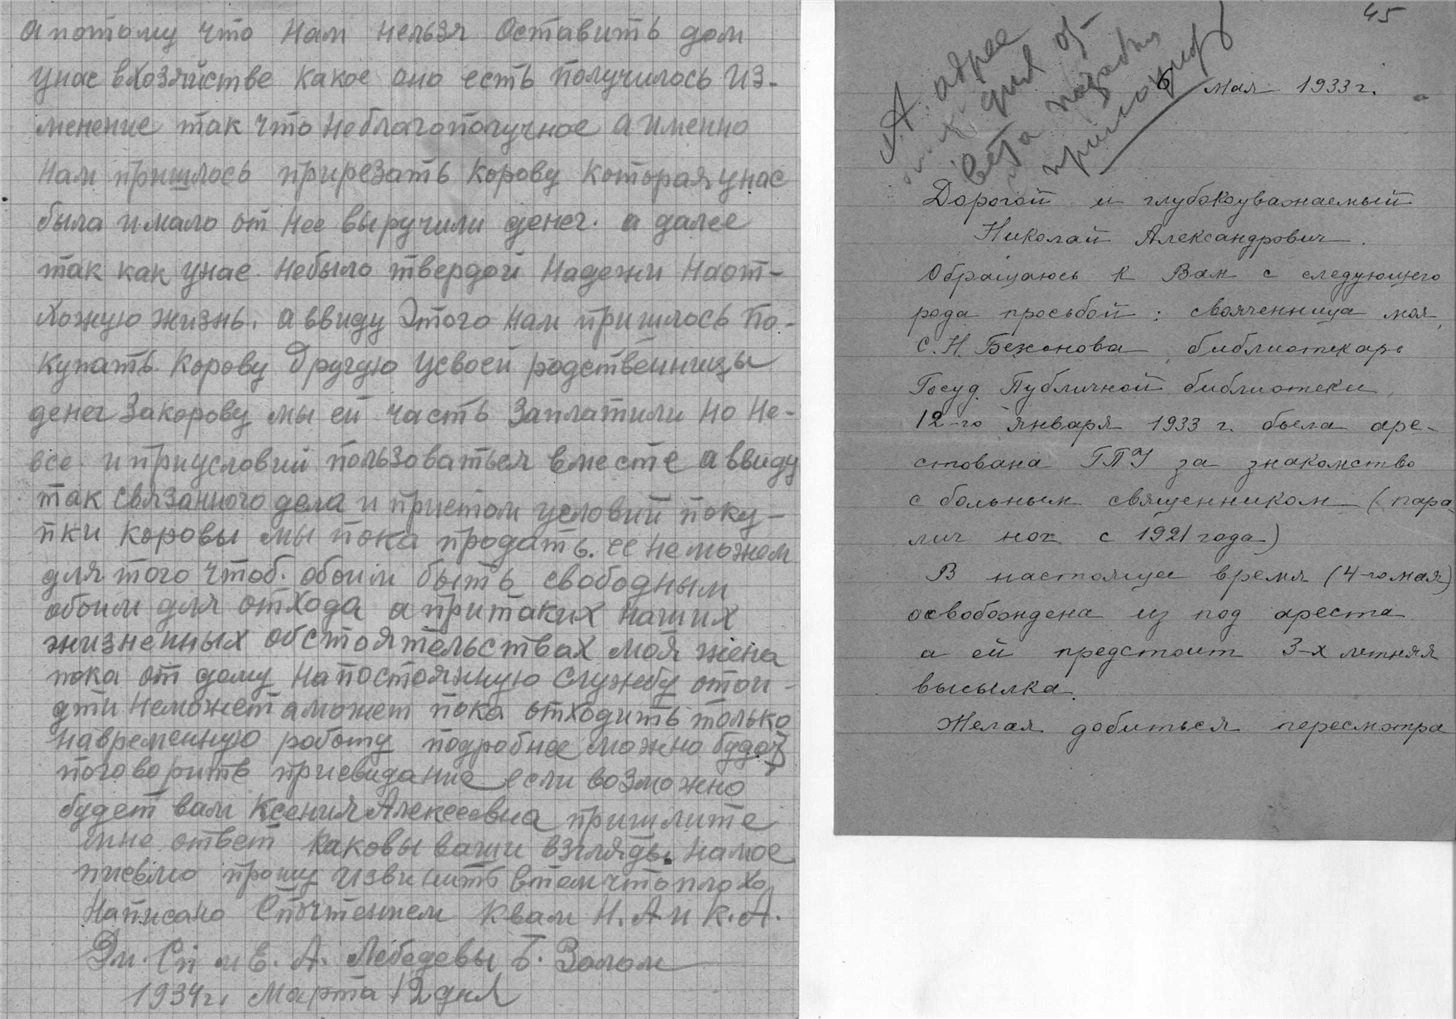 а потому что нам нельзя оставить дом
унас вхозяйстве какое оно есть получилось из-
менение так что неблагополучное а именно
нам пришлось прирезать корову которая унас
была и мало от нее выручили денег. а далее
так как унас небыло твердой надежи наот-
хожую жизнь. а ввиду этого нам пришлось по-
купать корову другую усвоей родственницы
денег закорову мы ей часть заплатили но не-
все. и приусловии пользоваться вместе а ввиду
так связанного дела и приэтом условий поку-
пки коровы мы пока продать. ее неможем
для того чтоб. обоим быть свободным
обоим для отхода а притаких наших
жизненных обстоятельствах моя жена
пока от дому напостоянную службу отой-
дти неможет аможет пока отходить только
навременную роботу подробнее можно будет
поговорить присвидание если возможно
будет вам Ксения Алексеевна пришлите
мне ответ каковы ваши взгляды намое
письмо прошу извинить втом что плохо
написано Спочтением квам Н. А и К. А.
Дм. Сп и Е. А. Лебедевы Б. Волом
1934 г. марта 12 дня
45
А. адрес
для от
6 мая 1933 г.
Дорогой и глубокоуважаемый
Николай Александрович.
Обращаюсь к Вам с следующего
рода просьбой: свояченница моя,
С. Н. Беженова, библиотекарь
Госуд. Публичной библиотеки,
12-го января 1933 г. была аре-
стована ГПУ за знакомство
с больным священником (пара
лич ног с 1921 года)
В настоящее время (4-го мая)
освобождена из под ареста
а ей предстоит 3-х летняя
высылка.
Желая добиться пересмотра